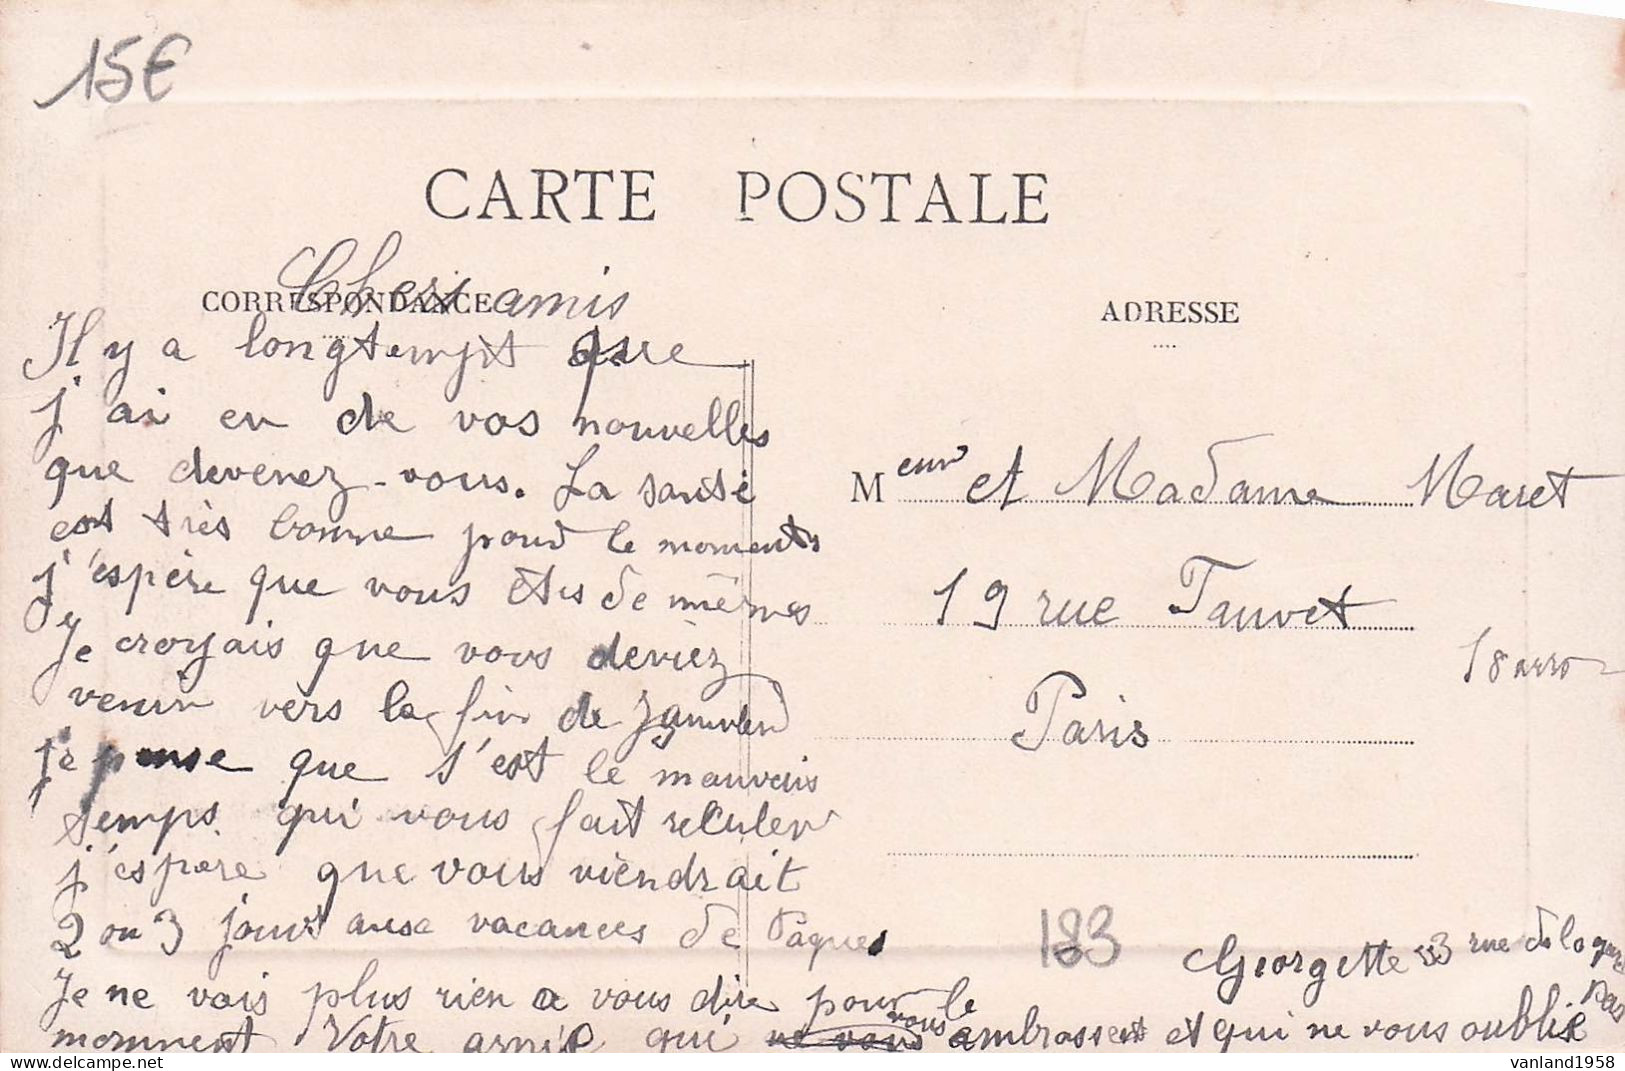 15€
CARTE POSTALE
CORRESPONDANCE
ADRESSE
Chers amis
Il y a longtempt que
j'ai eu de vos nouvelles
que devenez-vous. La santé
est très bonne pour le moments
j'éspère que vous êtes de mêmes
Je croyais que vous deviez
venir vers la fin de janvier
je pense que s'est le mauvais
temps qui vous fait reculer
j'éspère que vous viendrait
2 ou 3 jours ause vacances de Pâques
Je ne vois plus rien a vous dire pour le
momment Votre amie qui ne vous vous ambrassent et qui ne vous oublie pas
Meur et Madame Maret
19 rue Tauvet
18 arro
Paris
183
Georgette 53 rue de la gare
vanland1958